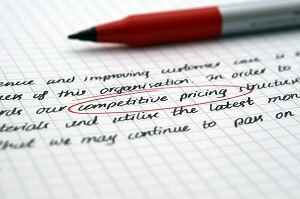 ence and improving customer care is
of this organisation. In order to
our competitive pricing structure
and utilise the latest
that we may continue to pass on